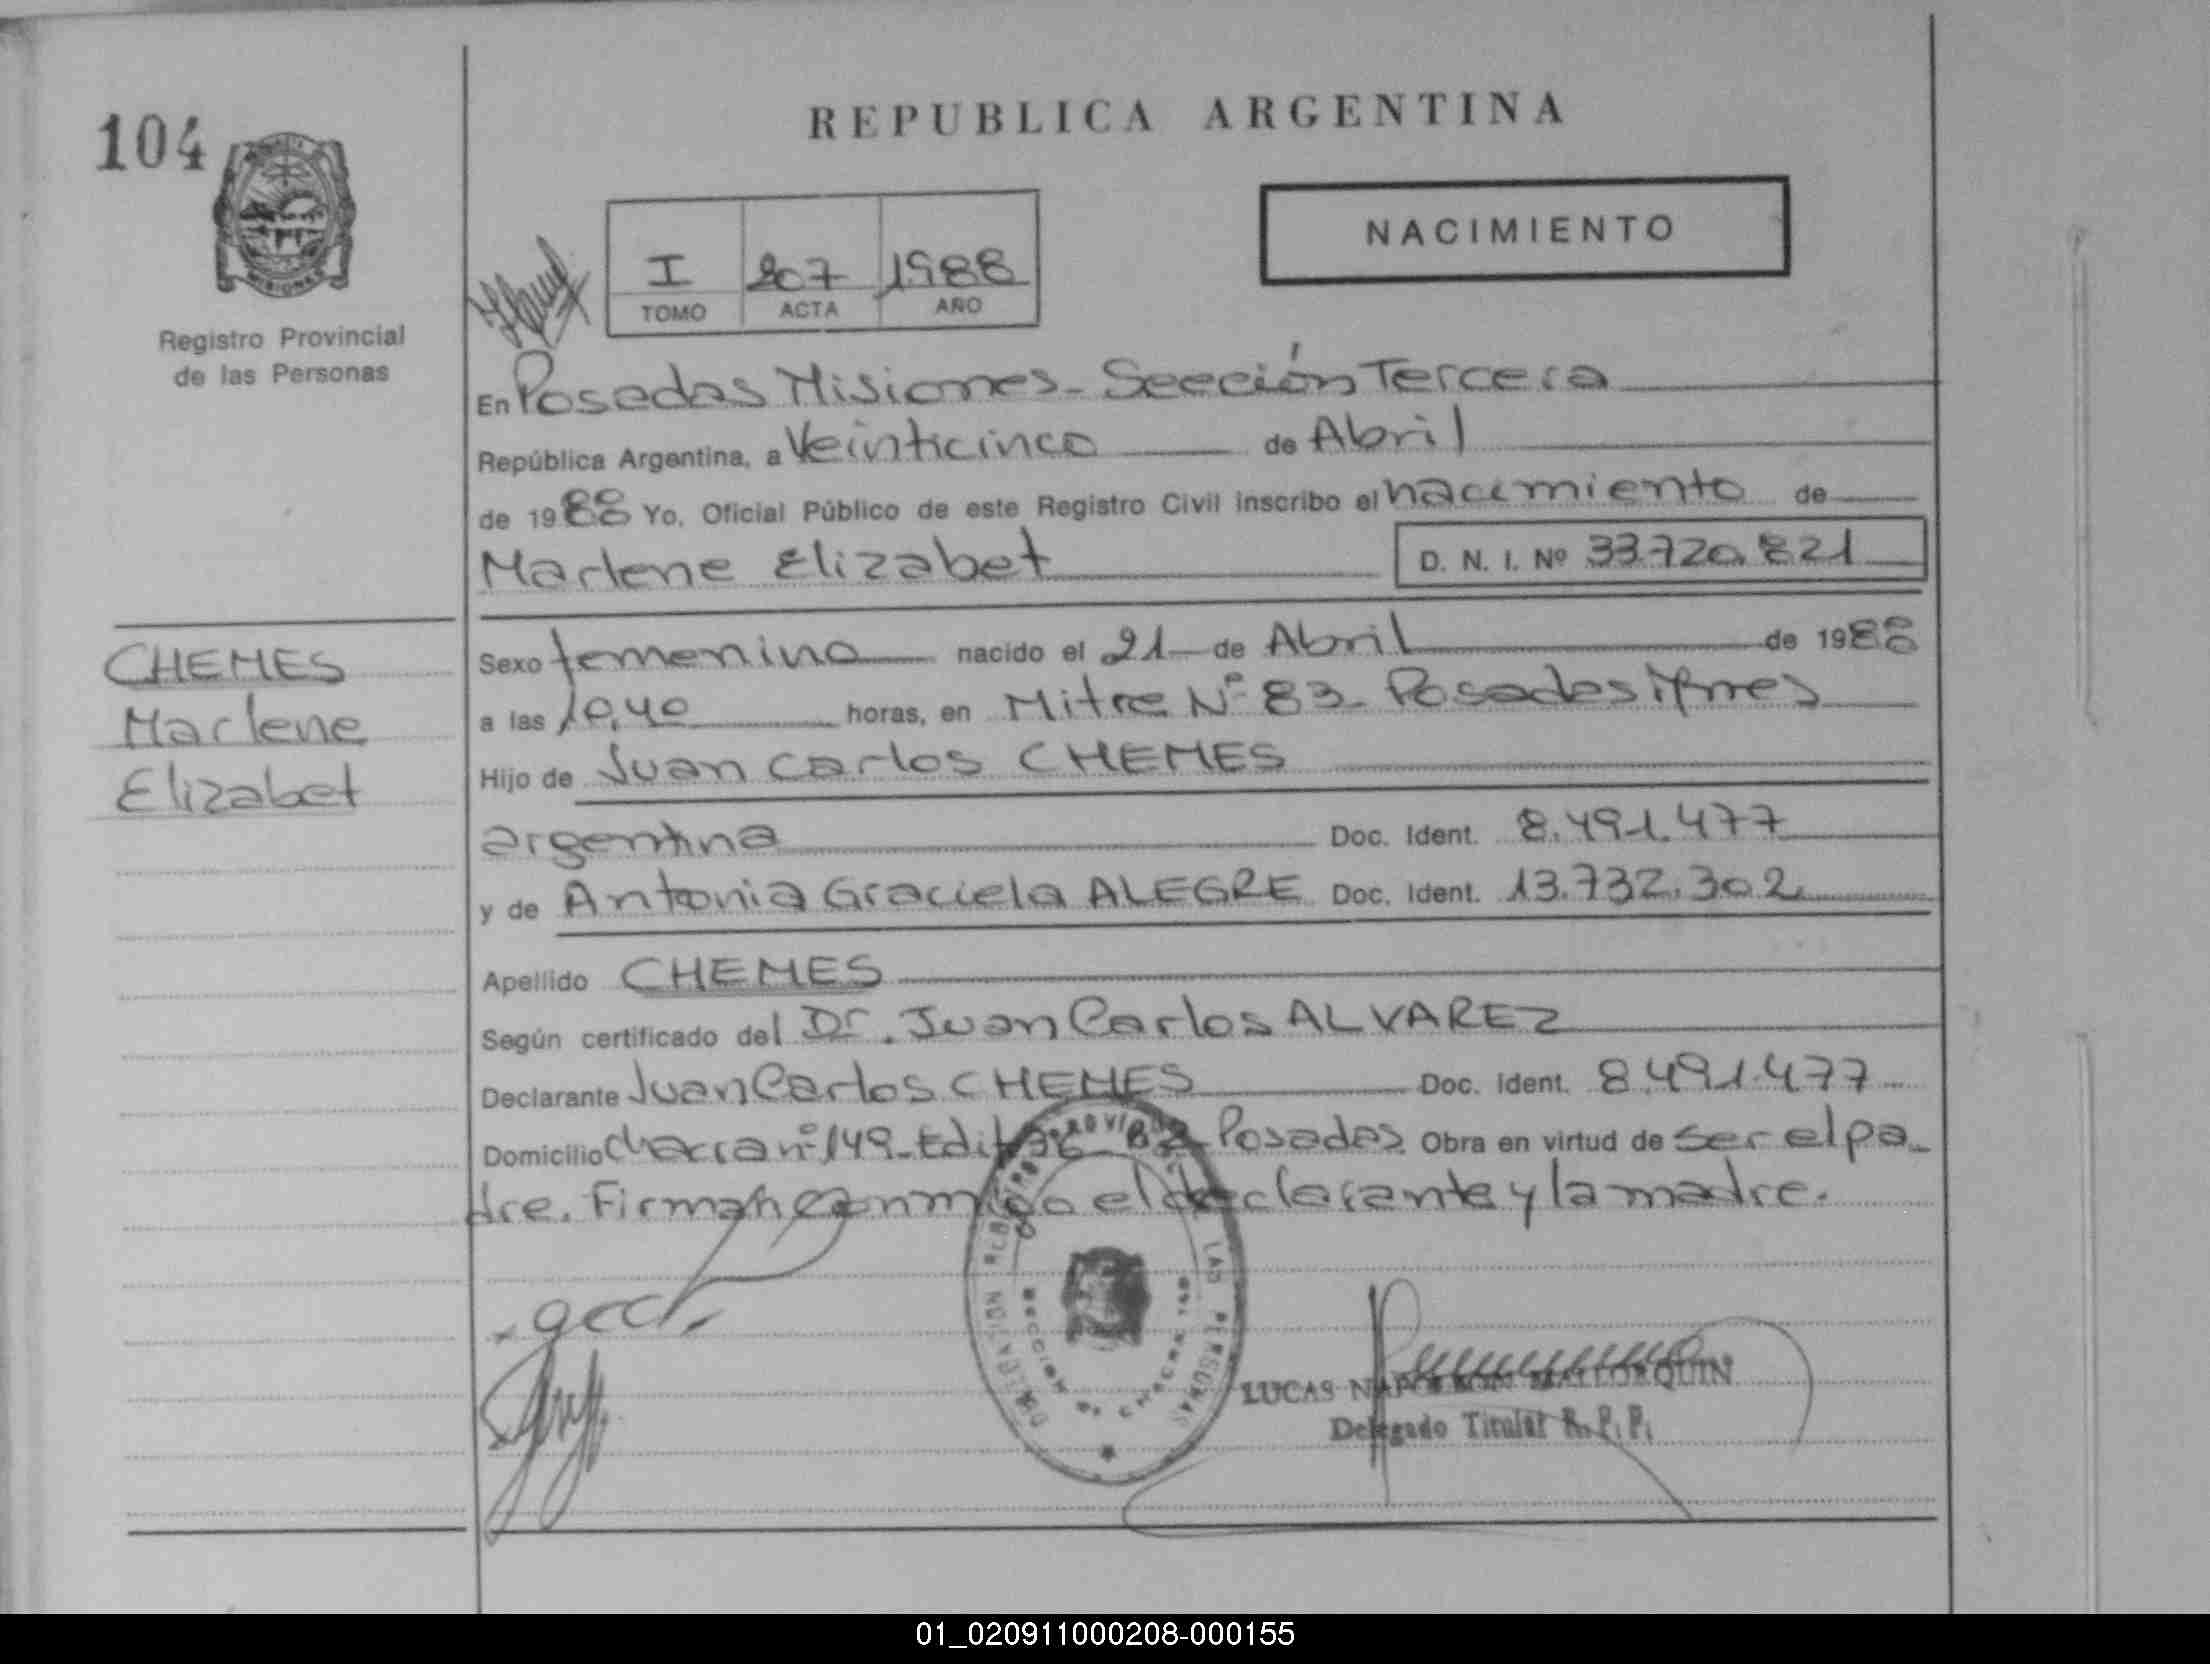 REPUBLICA ARGENTINA
104
NACIMIENTO
I 207 1988
TOMO ACTA AÑO
Registro Provincial
de las Personas
En Posadas Misiones - Sección Tercera
República Argentina, a Veinticinco de Abril
de 1988 Yo, Oficial Público de este Registro Civil inscribo el nacimiento de
Marlene Elizabet D. N. I. Nº 33.720.821
CHEMES
Marlene
Elizabet
Sexo femenino nacido el 21 de Abril de 1988
a las 10,40 horas, en Mitre Nº 83 - Posadas Mnes
Hijo de Juan Carlos CHEMES
argentina Doc. Ident. 8.491.477
y de Antonia Graciela ALEGRE Doc. Ident. 13.732.302
Apellido CHEMES
Según certificado del Dr. Juan Carlos ALVAREZ
Declarante Juan Carlos CHEMES Doc. Ident. 8.491.477
Domicilio Chacra nº 149 - Edif. Posadas Obra en virtud de ser el pa-
dre. Firman conmigo el declarante y la madre.
LUCAS NAPOLEON MALLORQUIN
Delegado Titular R. P. P.
01_020911000208-000155